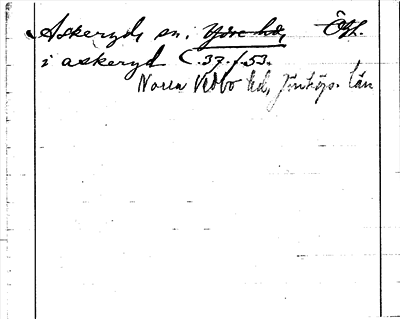 Askeryds sn, Ydre hd, Ög.
i askeryd C. 37. f. 53.
Norra Vedbo hd, Jönköps. län